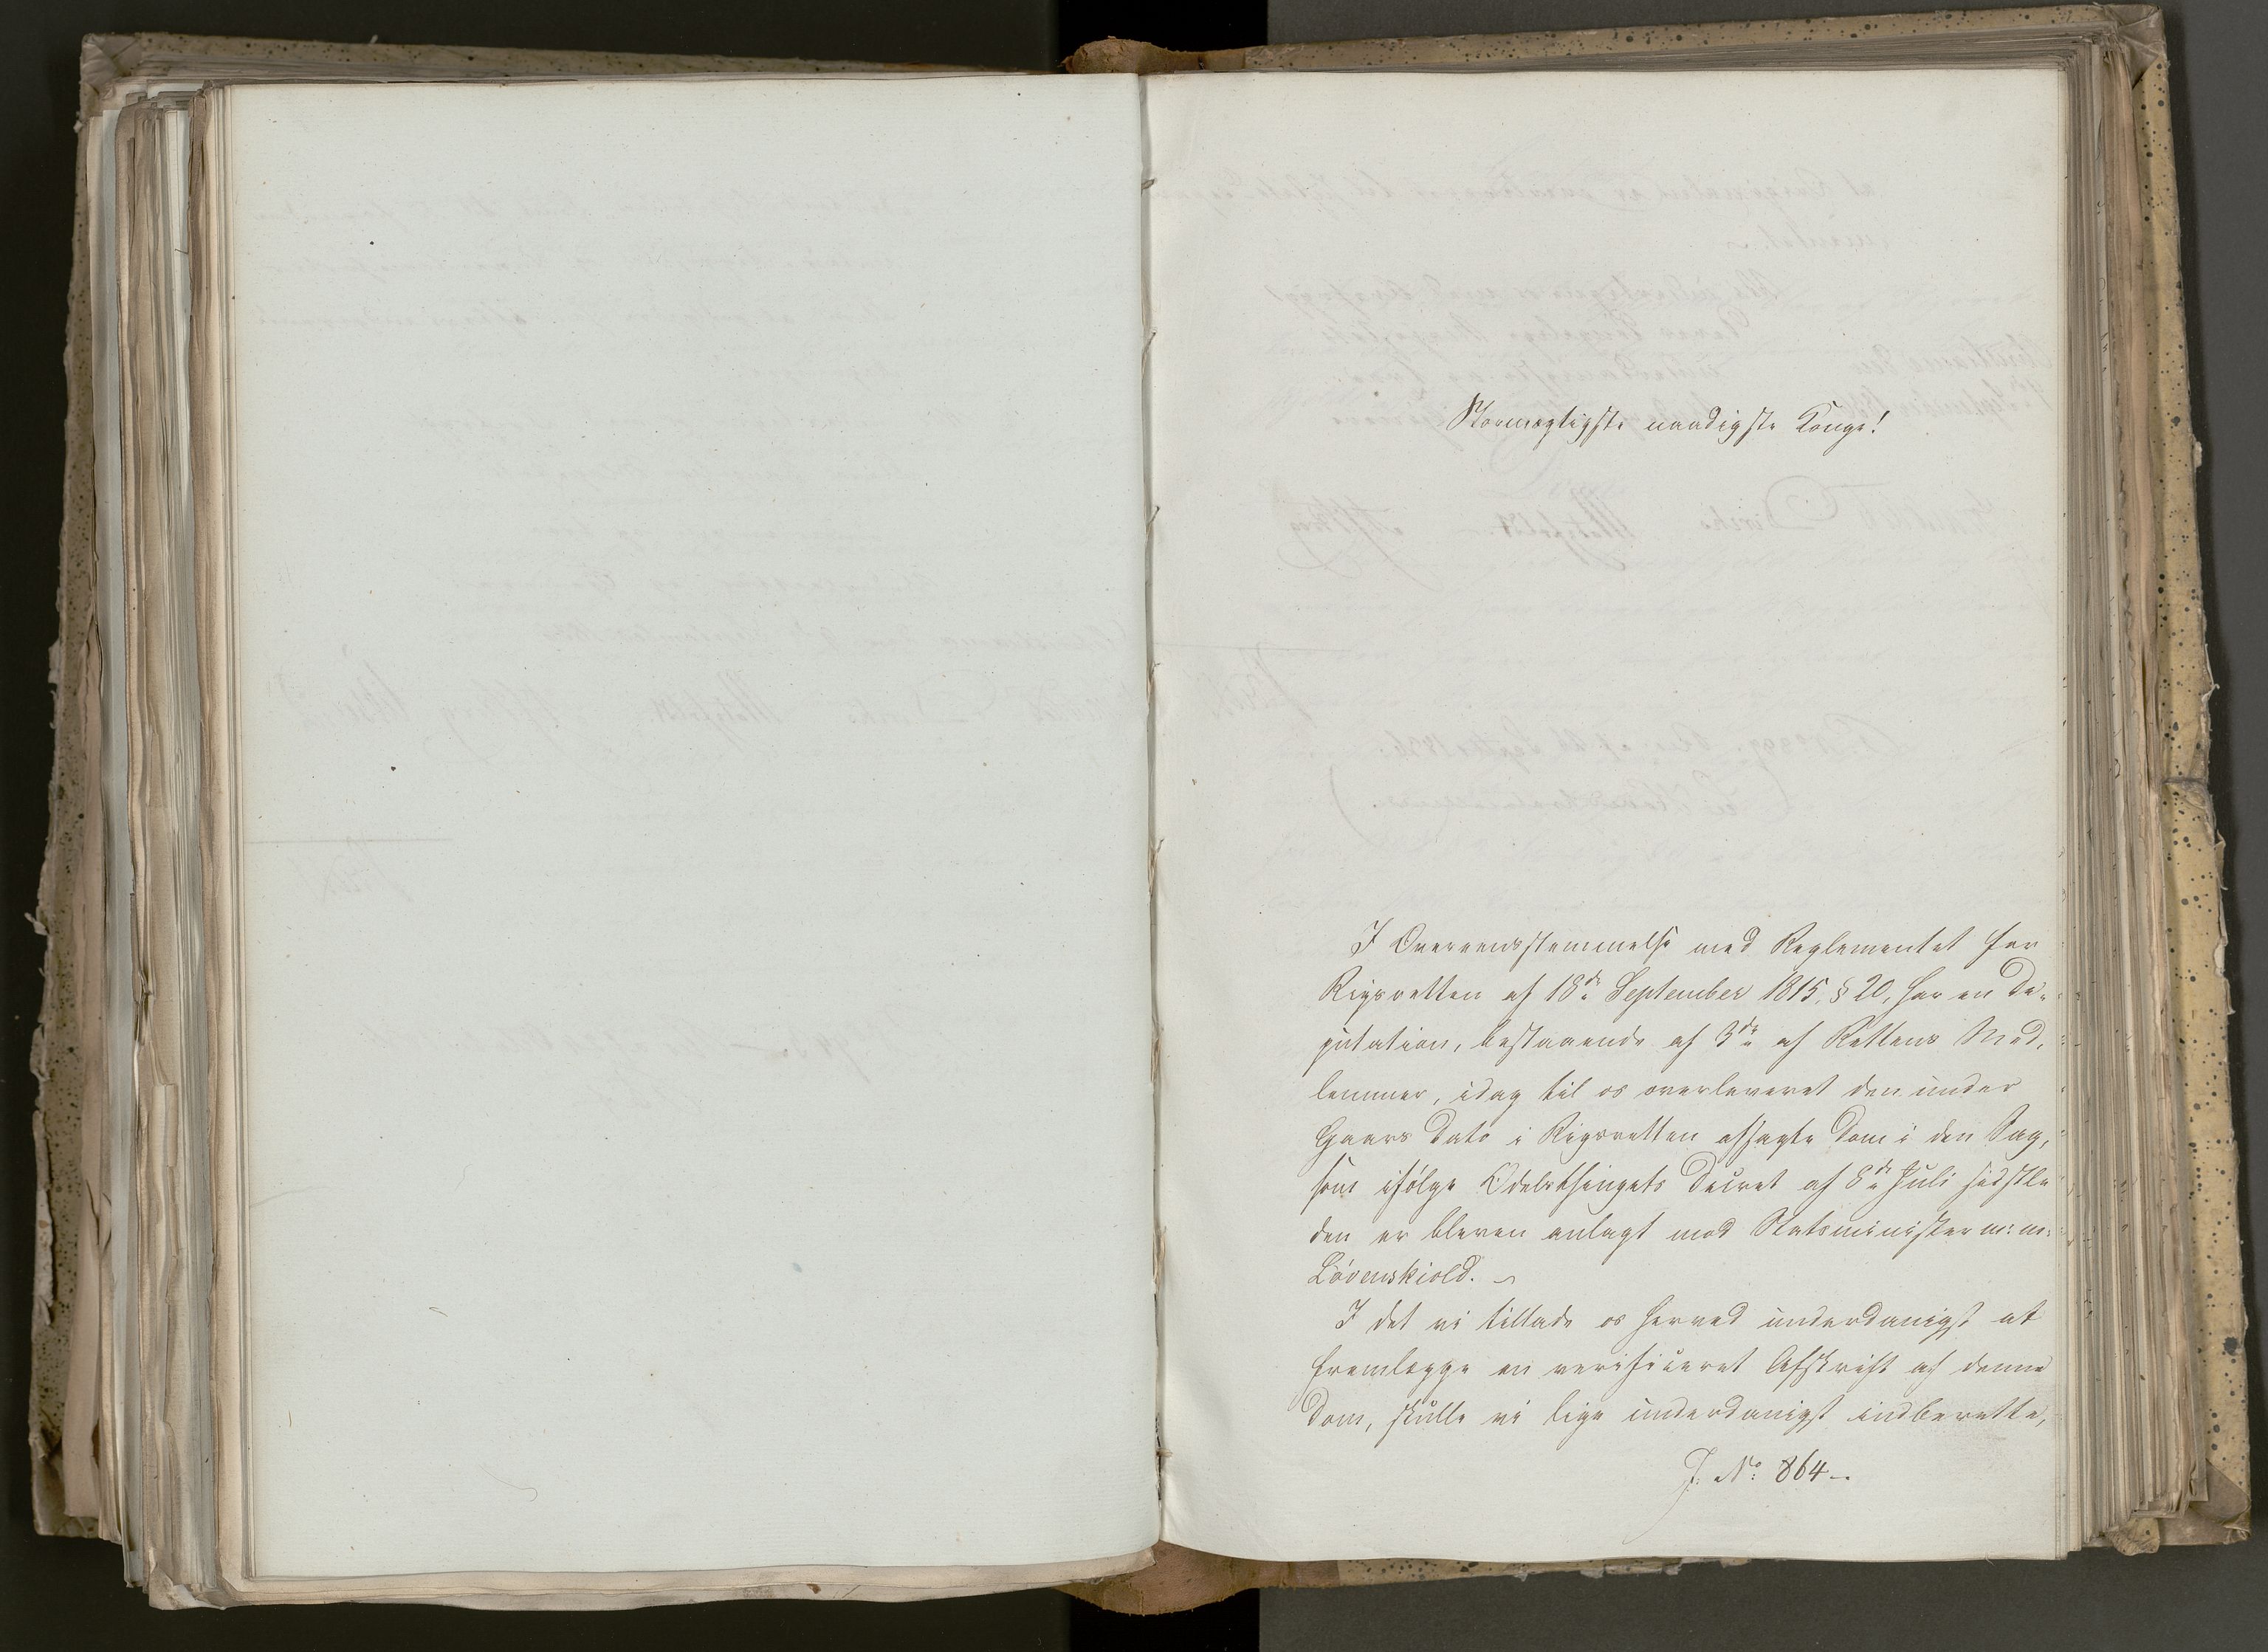 Stormægtigste naadigste Konge!
I Overeensstemmelse med Reglementet for
Rigsretten af 18de September 1815, § 20, har en De-
putation, bestaaende af 3de af Rettens Med-
lemmer, idag til os overleveret den under
Gaars Dato i Rigsretten afsagte Dom i den Sag,
som ifølge Odelsthingets Decret af 8de Juli sidstle-
den er bleven anlagt mod Statsminister m: m:
Løvenskiold.
I det vi tillade os herved underdanigst at
fremlægge en verificeret Afskrift af denne
Dom, skulle vi lige underdanigst indberette,
J. No: 864.